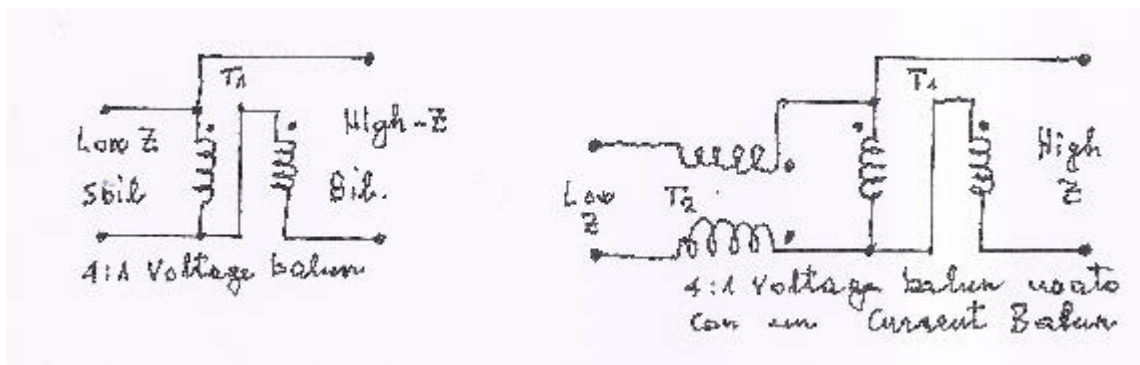 T1
Low Z
Sbil
High-Z
Bil.
4:1 Voltage balun
T1
Low
Z
T2
High
Z
4:1 Voltage balun usato
con un Current Balun